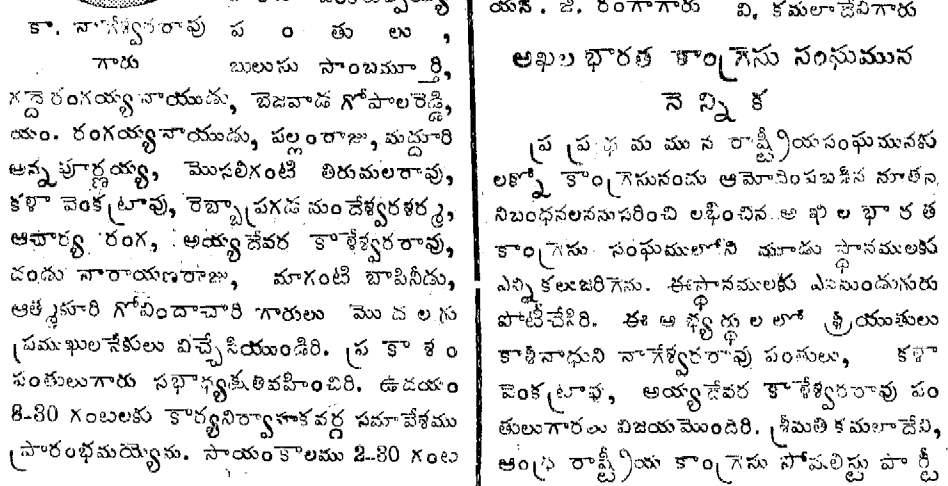 కా. నాగేశ్వరరావు ప ం తు లు ,
గారు బులుసు సాంబమూర్తి,
గద్దెరంగయ్యనాయుడు, బెజవాడ గోపాలరెడ్డి,
యం. రంగయ్యనాయుడు, పల్లంరాజు, మద్దూరి
అన్నపూర్ణయ్య, మొసలిగంటి తిరుమలరావు,
కళా వెంకట్రావు, రెబ్బాప్రగడ మందేశ్వరశర్మ,
ఆచార్య రంగ, అయ్యదేవర కాళేశ్వరరావు,
దండు నారాయణరాజు, మాగంటి బాపినీడు,
ఆత్మకూరి గోవిందాచారి గారులు మొ ద ల గు
ప్రముఖులనేకులు విచ్చేసియుండిరి. ప్ర కా శ ం
పంతులుగారు సభాధ్యక్షతవహించిరి. ఉదయం
8-30 గంటలకు కార్యనిర్వాహకవర్గ సమావేశము
ప్రారంభమయ్యెను. సాయంకాలము 2-30 గంట
యన్. జి. రంగాగారు వి. కమలాదేవిగారు
అఖిలభారత కాంగ్రెసు సంఘమున
నె న్ని క
ప్ర ప్ర ధ మ ము న రాష్ట్రీయసంఘమునకు
లక్నో కాంగ్రెసునందు ఆమోదింపబడిన నూతన
నిబంధనలననుసరించి లభించిన అ ఖి ల భా ర త
కాంగ్రెసు సంఘములోని మూడు స్థానములకు
ఎన్నికలుజరిగెను. ఈస్థానములకు ఎనమండుగురు
పోటీచేసిరి. ఈ అ భ్య ర్థు ల లో శ్రీయుతులు
కాశీనాధుని నాగేశ్వరరావు పంతులు, కళా
వెంకట్రావు, అయ్యదేవర కాళేశ్వరరావు పం
తులుగారలు విజయమొందిరి. శ్రీమతి కమలాదేవి,
ఆంధ్ర రాష్ట్రీయ కాంగ్రెసు సోషలిస్టు పా ర్టీ